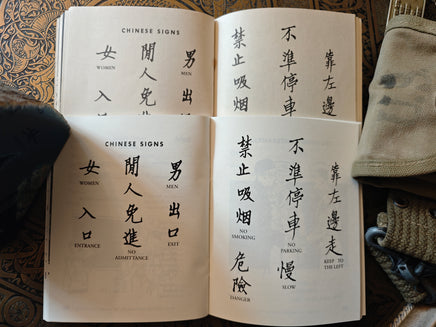 CHINESE SIGNS
女
WOMEN
閒人免
男
MEN
入
出
禁止吸烟
不準停車
靠左邊
CHINESE SIGNS
女
WOMEN
閒人免進
NO
ADMITTANCE
男
MEN
入口
ENTRANCE
出口
EXIT
禁止吸烟
NO
SMOKING
不準停車
NO
PARKING
靠左邊走
KEEP TO
THE LEFT
危險
DANGER
慢
SLOW